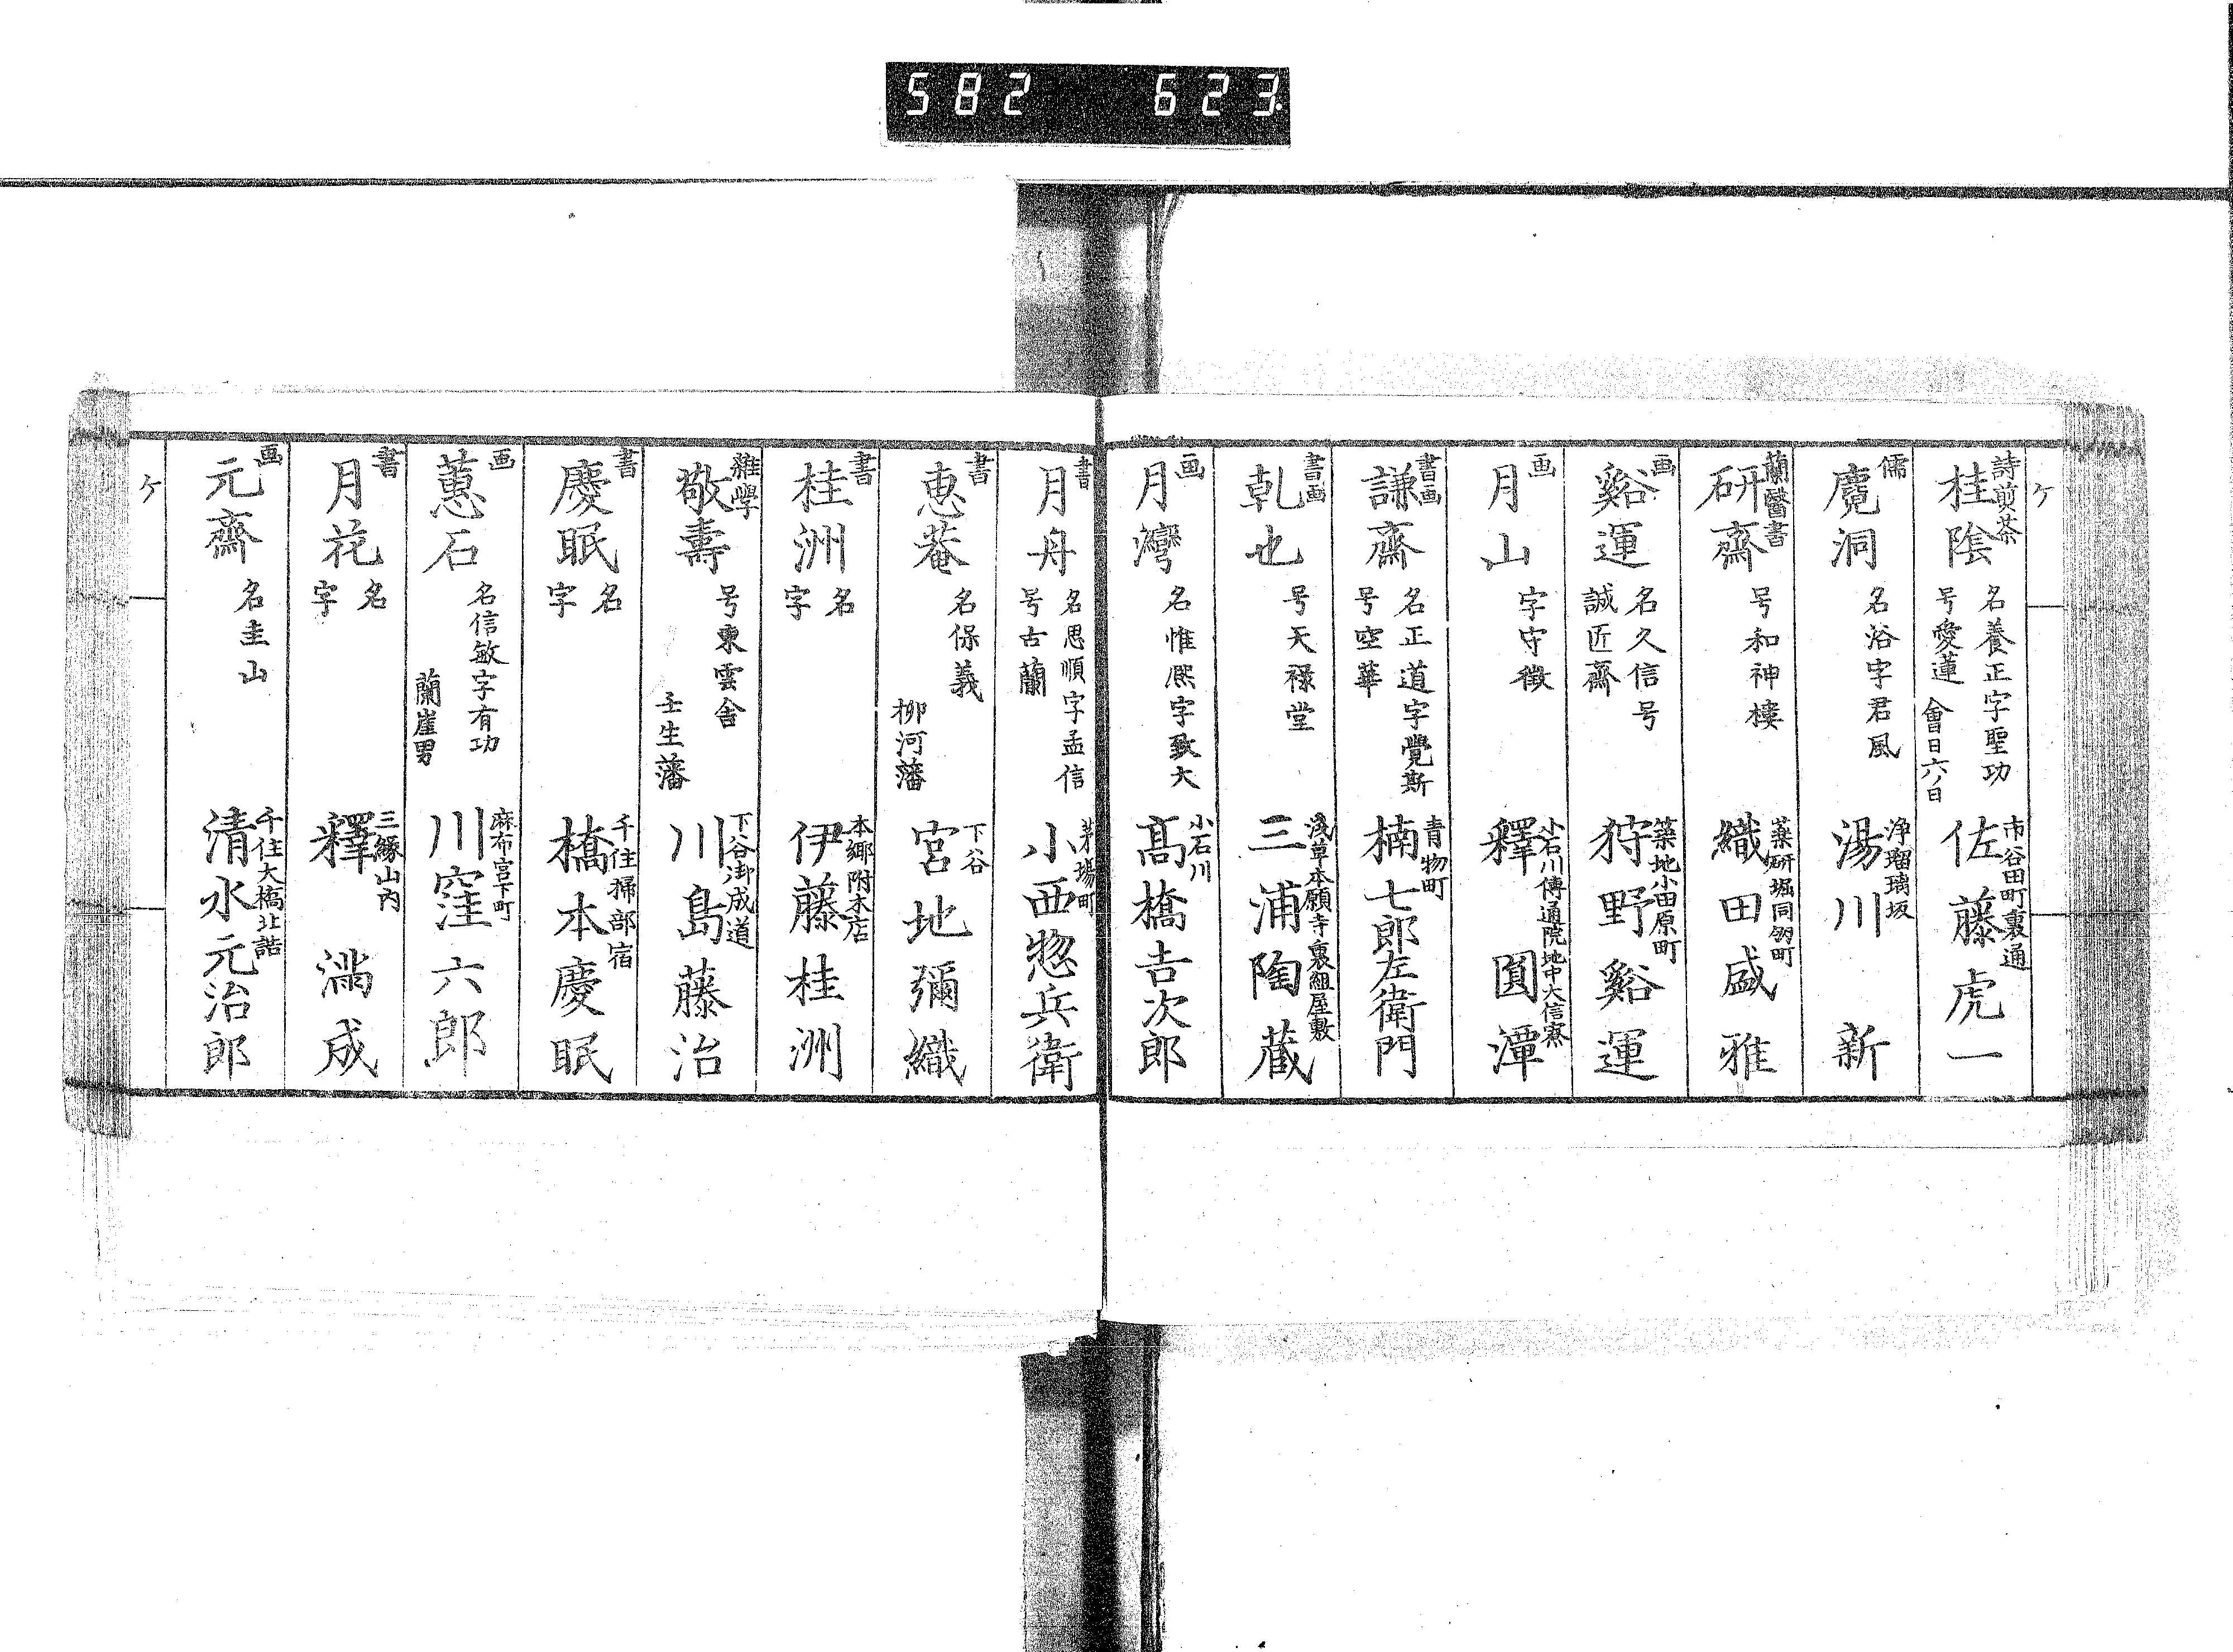 582 623
ケ
詩煎茶
桂陰
名養正字聖功
号愛蓮 會日六ノ日
市谷田町裏通
佐藤虎一
儒
魔洞
名浴字君風
浄瑠璃坂
湯川新
蘭醫書
研齋
号和神樓
薬研堀同朋町
織田盛雅
画
谿運
名久信号
誠匠齋
築地小田原町
狩野谿運
画
月山
字守徴
小石川傳通院地中大信寮
釋圓潭
書画
謙齋
名正道字覺斯
号空華
青物町
楠七郎左衛門
書画
乾也
号天禄堂
浅草本願寺裏組屋敷
三浦陶蔵
画
月灣
名惟熈字致大
小石川
髙橋吉次郎
書
月舟
名思順字孟信
号古蘭
茅場町
小西惣兵衛
書
恵菴
名保義
柳河藩
下谷
宮地彌織
書
桂洲
名
字
本郷附木店
伊藤桂洲
雜學
敬壽
号東雲舎
壬生藩
下谷御成道
川島藤治
書
慶眠
名
字
千住掃部宿
橋本慶眠
画
蕙石
名信敏字有功
蘭崖男
麻布宮下町
川窪六郎
書
月花
名
字
三縁山内
釋満成
画
元齋
名圭山
千住大橋北詰
清水元治郎
ケ